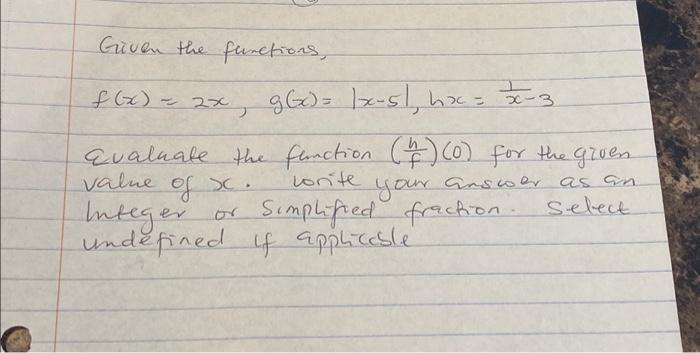 Given the functions,
f(x) = 2x, g(x) = |x-5|, hx = 1/x-3
Evaluate the function (h/f)(0) for the given
value of x. Write your answer as an
Integer or Simplified fraction. Select
undefined if applicable